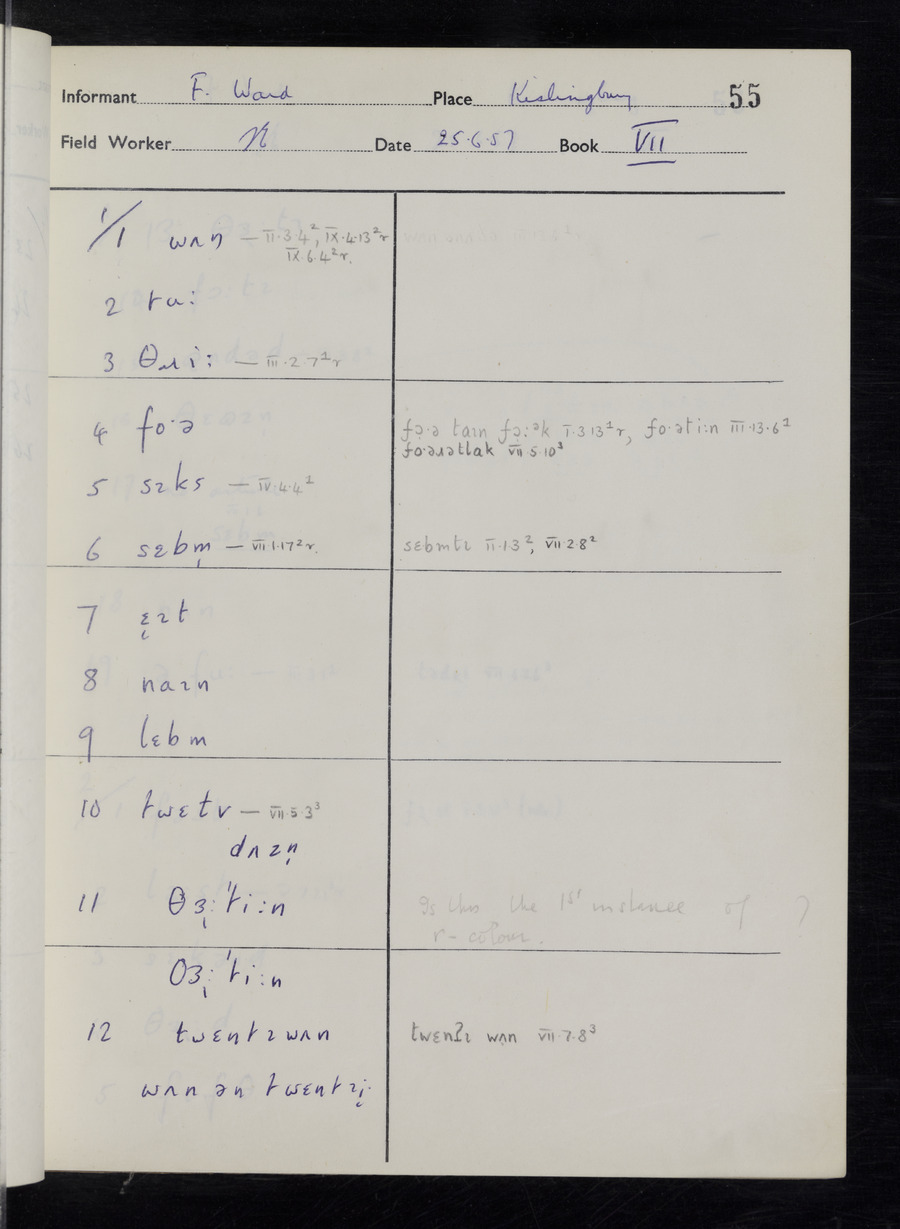 Informant F. Ward Place Kislingbury 55
Field Worker Date 25·6·57 Book VII
1/1 wʌn — II·3·4², IX·4·13²r
IX·6·4²r.
2 tuː
3 θɹiː — III·2·7¹r
4 foˑə fɔˑə taɪn fɔːək I·3·13¹r, foˑətiːn III·13·6²
foˑəɹətlak VII·5·10³
5 sɪks — IV·4·4²
6 sɛbm̩ — VII·1·17²r. sɛbmtɪ II·1·3², VII·2·8²
7 ɛɪt
8 naɪn
9 lɛbm
10 twɛtv — VII·5·3³
dʌzn̩
11 θɜːˈtiːn Is this the 1st instance of ?
r-colour.
θɜːˈtiːn
12 twɛntɪwʌn twɛnʔɪ wʌn VII·7·8³
wʌn ən twɛntɪi·